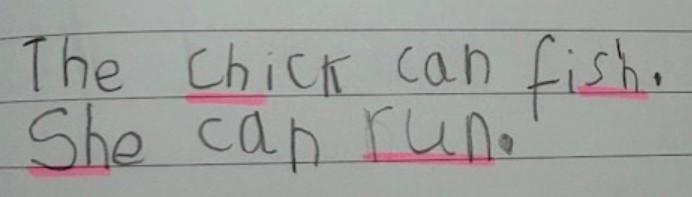 The chick can fish.
She can run.